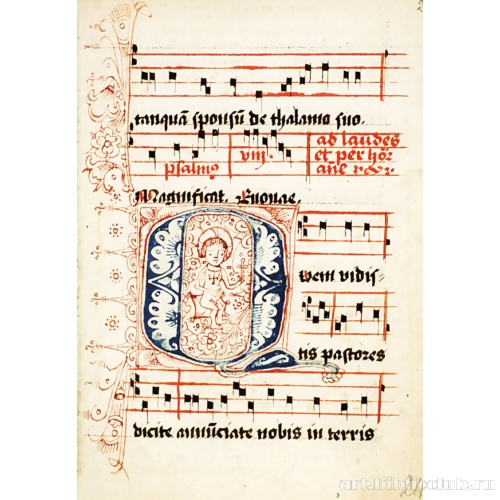 tanquã sponsũ de thalamo suo.
psalmꝯ viii ad laudes
et per hor
Magnificat. Euouae.
Quem vidis-
tis pastores
dicite annũciate nobis in terris
art.biblioclub.ru